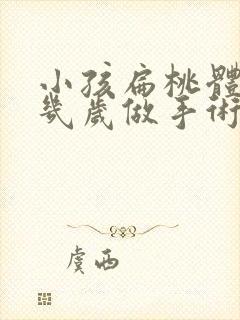 小孩扁桃體
幾歲做手術
虞西